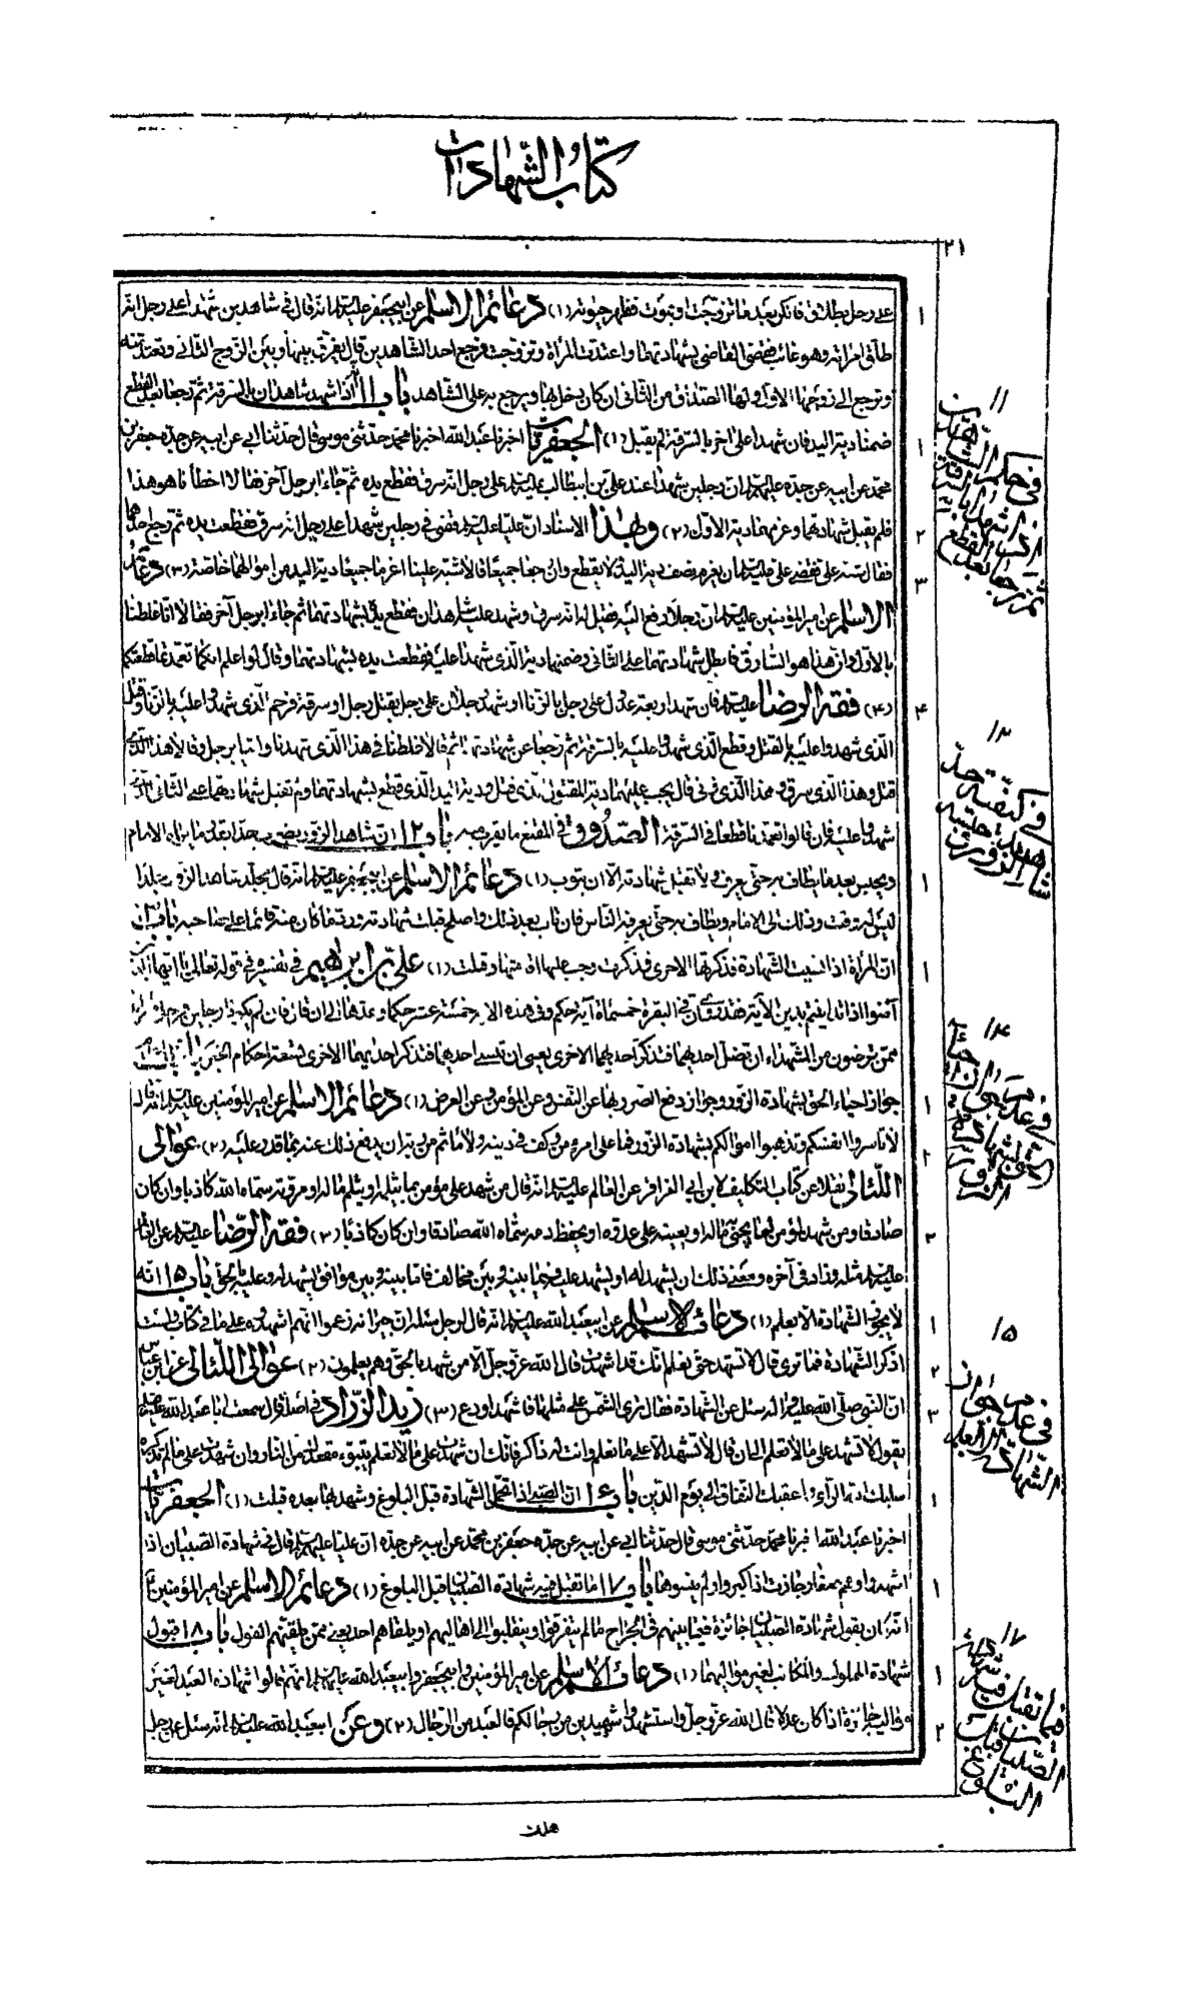 كتاب الشهادات
٢١
على رجل بطلاق فانكر بعد ما تزوجت او بموت فظهر حيوته (١) دعائم الاسلام عن ابيجعفر عليه السلام انه قال في شاهدين شهدا على رجل انه
طلق امراته وهو غائب فقضى القاضي بشهادتهما واعتدت المرأة وتزوجت فرجع احد الشاهدين قال يفرق بينها وبين الزوج الثاني وتعتد منه
وترجع الى زوجها الاول ولها الصداق من الثاني ان كان دخل بها ويرجع به على الشاهد باب ١١ اذا شهد شاهدان بالسرقة ثم رجعا بعد القطع
ضمنا دية اليد فان شهدا على آخر بالسرقة لم يقبل (١) الجعفريات اخبرنا عبد الله اخبرنا محمد حدثني موسى قال حدثنا ابي عن ابيه عن جده جعفر بن
محمد عن ابيه عن جده عليهم السلام ان رجلين شهدا عند علي بن ابيطالب عليه السلام على رجل انه سرق فقطع يده ثم جاءا برجل آخر فقالا اخطأنا هو هذا
فلم يقبل شهادتهما وغرمهما دية الاول (٢) وبهذا الاسناد ان عليا عليه السلام قضى في رجلين شهدا على رجل انه سرق فقطعت يده ثم رجع احدهما
فقال شبه على فقضى علي عليه السلام ان يغرم نصف دية اليد ولا يقطع وان رجعا جميعا وقالا شبه علينا اغرما جميعا دية اليد من اموالهما خاصة (٣) دعائم
الاسلام عن امير المؤمنين عليه السلام ان رجلا دفع اليه فقيل له انه سرق وشهد عليه شاهدان فقطع يده بشهادتهما ثم جاءا برجل آخر فقالا انا غلطنا
بالاول وان هذا هو السارق فابطل شهادتهما على الثاني وضمنهما دية الذي شهدا عليه فقطعت يده بشهادتهما وقال لو اعلم انكما تعمدتما قطعتكما
(٤) فقه الرضا عليه السلام فان شهد اربعة عدول على رجل بالزنا او شهد رجلان على رجل بقتل رجل او سرقة فرجم الذي شهدوا عليه بالزنا وقتل
الذي شهدوا عليه بالقتل وقطع الذي شهدوا عليه بالسرقة ثم رجعا عن شهادتهما ثم قالا غلطنا في هذا الذي شهدنا واتيا برجل وقالا هذا الذي
قتل وهذا الذي سرق وهذا الذي زنى قال يجب عليهما دية المقتول الذي قتل ودية اليد الذي قطع بشهادتهما ولم تقبل شهادتهما على الثاني الذي
شهدوا عليه فان قالوا تعمدنا قطعا في السرقة الصدوق في المقنع ما يقرب منه باب ١٢ ان شاهد الزور يضرب حدا بقدر ما يراه الامام
ويحبس بعد ما يطاف به حتى يعرف ولا تقبل شهادته الا ان يتوب (١) دعائم الاسلام عن ابيجعفر عليه السلام انه قال يجلد شاهد الزور جلدا
ليس له وقت وذلك الى الامام ويطاف به حتى يعرفه الناس فان تاب بعد ذلك واصلح قبلت شهادته ورد ما كان منه قائما على صاحبه باب ١٣
ان المرأة اذا نسيت الشهادة فذكرتها الاخرى فذكرت وجب عليها اقامتها وقبلت (١) علي بن ابراهيم في تفسيره في قوله تعالى يا ايها الذين
آمنوا اذا تداينتم بدين الآية فقد روى ان في البقرة خمسمائة حكم وفي هذه الآية خمسة عشر حكما وعدها الى ان قال فان لم يكونا رجلين فرجل وامرأتان
ممن ترضون من الشهداء ان تضل احديهما فتذكر احديهما الاخرى يعني ان تنسى احديهما فتذكر احديهما الاخرى
جواز احياء الحق بشهادة الزور وجواز دفع الضرر بها عن النفس وعن المؤمن وعن العرض (١) دعائم الاسلام عن امير المؤمنين عليه السلام انه قال
بشهادة الزور فما على امرء من وكف في دينه ولا مأثم من ربه ان يدفع ذلك عنه بما قدر عليه (٢) عوالي
اللئالي نقلا عن كتاب التكليف لابن ابي العزاقر عن العالم عليه السلام انه قال من شهد على مؤمن بما يثلمه او يثلم ماله او مروته سماه الله كاذبا وان كان
صادقا ومن شهد لمؤمن بما يحيى ماله او يعينه على عدوه او يحفظ دمه سماه الله صادقا وان كان كاذبا (٣) فقه الرضا عليه السلام عن العالم
عليه السلام مثله وزاد في آخره ومعنى ذلك ان يشهد له او يشهد عليه فيما بينه وبين مخالف فاما بينه وبين موافق يشهد له وعليه بالحق باب ١٥ انه
لا يجوز الشهادة الا بعلم (١) دعائم الاسلام عن ابيعبد الله عليه السلام انه قال لرجل سئله ان جيرانه زعموا انهم اشهدوه على ما في كتاب لست
اذكر الشهادة فما ترى قال لا تشهد حتى تعلم انك قد اشهدت قال الله عز وجل الا من شهد بالحق وهم يعلمون (٢) عوالي اللئالي عن ابن عباس
ان النبي صلى الله عليه وآله سئل عن الشهادة فقال ترى الشمس على مثلها فاشهد او دع (٣) زيد الزراد في اصله قال سمعت ابا عبد الله عليه السلام
يقول لا تشهد على ما لا تعلم الى ان قال لا تشهد الا على ما تعلم وانت له ذاكر فانك ان شهدت على ما لا تعلم يتبوء مقعدك من النار وان شهدت على ما لم تذكره
سلبك الله الرأي واعقبك النفاق الى يوم الدين باب ١٦ ان الصبي اذا تحمل الشهادة قبل البلوغ وشهد بها بعده قبلت (١) الجعفريات
اخبرنا عبد الله اخبرنا محمد حدثني موسى قال حدثنا ابي عن ابيه عن جده جعفر بن محمد عن ابيه عن جده ان عليا عليهم السلام قال في شهادة الصبيان اذا
اشهدوا وهم صغار جازت اذا كبروا ولم ينسوها باب ١٧ ما تقبل فيه شهادة الصبيان قبل البلوغ (١) دعائم الاسلام عن امير المؤمنين
انه كان يقول شهادة الصبيان جائزة فيما بينهم في الجراح ما لم يتفرقوا وينقلبوا الى اهاليهم او يلقاهم احد يعني ممن يلقنهم القول باب ١٨ قبول
شهادة المملوك والمكاتب لغير مواليهما (١) دعائم الاسلام عن امير المؤمنين وابيجعفر وابيعبد الله عليهم السلام انهم قالوا شهادة العبد لغير
مواليه جائزة اذا كان عدلا قال الله عز وجل واستشهدوا شهيدين من رجالكم فالعبد من الرجال (٢) وعن ابيعبد الله عليه السلام انه سئل عن رجل
هلك
١١
في حكم الشاهدين
اذا شهدا بالسرقة
ثم رجعا بعد القطع
١٢
في كيفية حد
شاهد الزور وحبسه
١٤
١٥
في عدم جواز
الشهادة الا بعلم
١٧
فيما تقبل فيه شهادة
الصبيان قبل
البلوغ